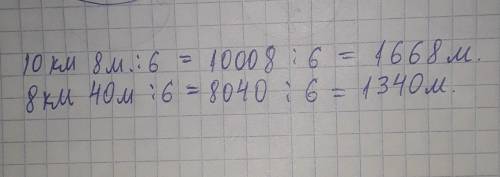 10 км 8 м : 6 = 10008 : 6 = 1668 м.
8 км 40 м : 6 = 8040 : 6 = 1340 м.